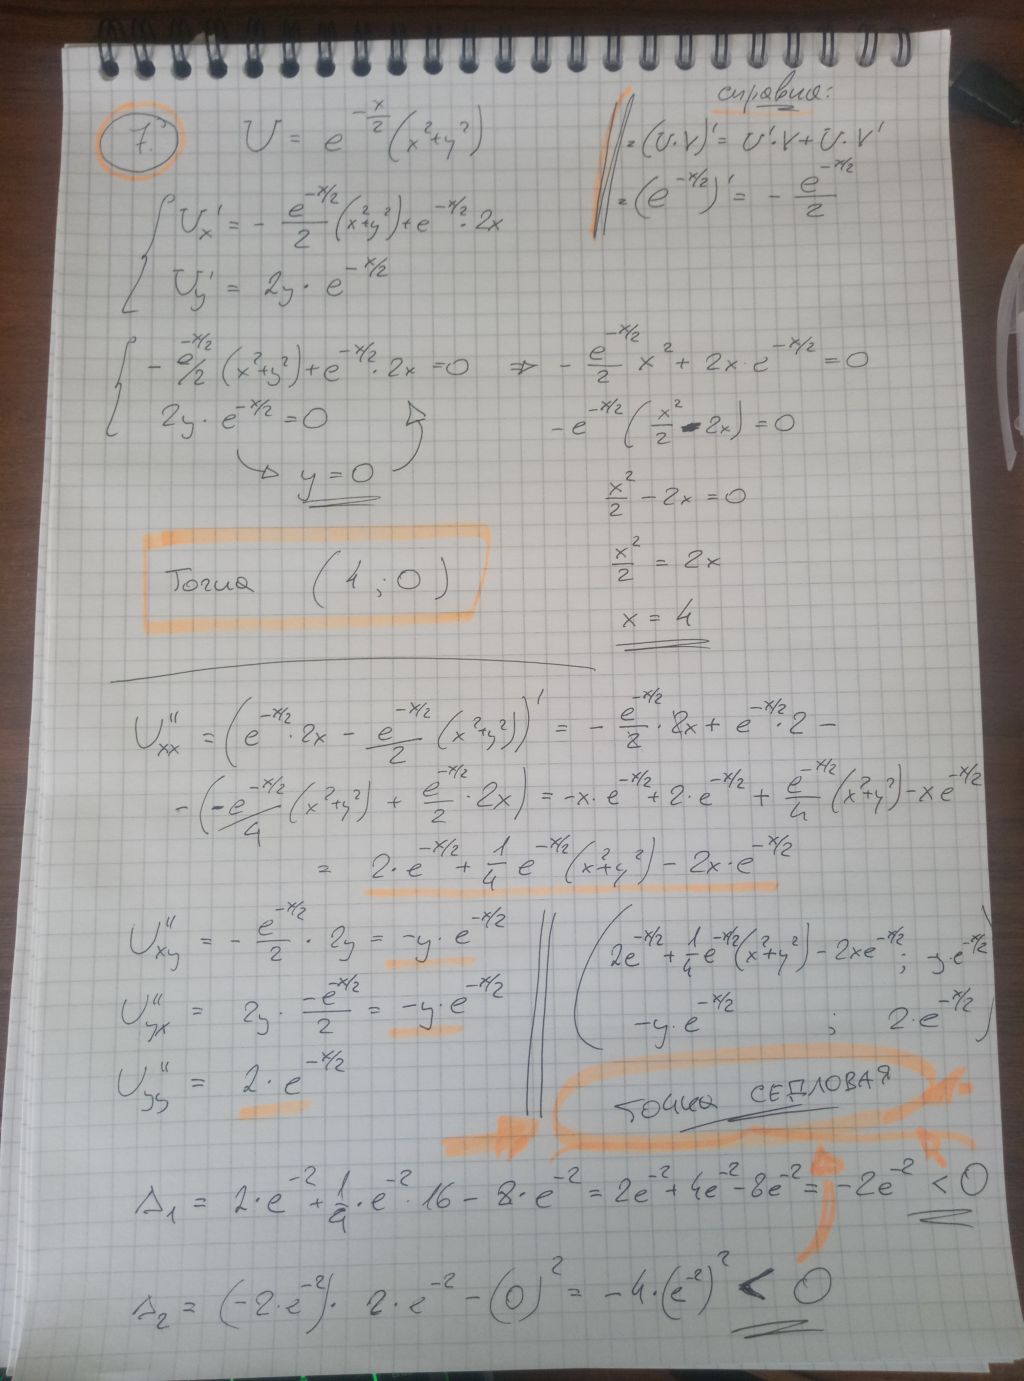 7. U = e^{-x/2} (x²+y²)
справка:
= (U·V)' = U'·V + U·V'
= (e^{-x/2})' = - e^{-x/2}/2
{ U'ₓ = - e^{-x/2}/2 (x²+y²) + e^{-x/2}·2x
U'ᵧ = 2y · e^{-x/2}
{ - e^{-x/2}/2 (x²+y²) + e^{-x/2}·2x = 0 ⇒ - e^{-x/2}/2 x² + 2x·e^{-x/2} = 0
2y · e^{-x/2} = 0
-e^{-x/2} (x²/2 - 2x) = 0
y = 0
x²/2 - 2x = 0
x²/2 = 2x
x = 4
Точка (4 ; 0)
U''ₓₓ = (e^{-x/2}·2x - e^{-x/2}/2 (x²+y²))' = - e^{-x/2}/2 · 2x + e^{-x/2}·2 -
- (-e^{-x/2}/4 (x²+y²) + e^{-x/2}/2 · 2x) = -x·e^{-x/2} + 2·e^{-x/2} + e^{-x/2}/4 (x²+y²) - xe^{-x/2}
= 2·e^{-x/2} + 1/4 e^{-x/2} (x²+y²) - 2x·e^{-x/2}
U''ₓᵧ = - e^{-x/2}/2 · 2y = -y·e^{-x/2}
U''ᵧₓ = 2y · -e^{-x/2}/2 = -y·e^{-x/2}
U''ᵧᵧ = 2·e^{-x/2}
(2e^{-x/2} + 1/4 e^{-x/2} (x²+y²) - 2xe^{-x/2} ; -y·e^{-x/2}
-y·e^{-x/2} ; 2·e^{-x/2})
точка СЕДЛОВАЯ
Δ₁ = 2·e^{-2} + 1/4·e^{-2}·16 - 8·e^{-2} = 2e^{-2} + 4e^{-2} - 8e^{-2} = -2e^{-2} < 0
Δ₂ = (-2·e^{-2})· 2·e^{-2} - (0)² = -4·(e^{-2})² < 0